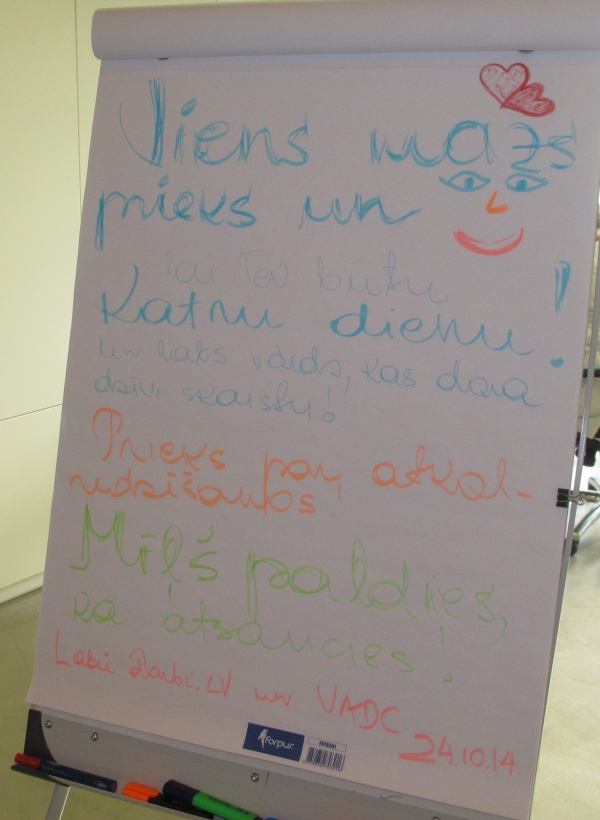 Viens mazs
prieks un
lai Tev būtu
Katru dienu!
un labs vārds, kas dara
dzīvi skaistu!
Prieks par atkal-
redzīšanos!
Mīļš paldies,
ka atsaucies!
Labie Darbi.LV un VADC
24.10.14.
forpus